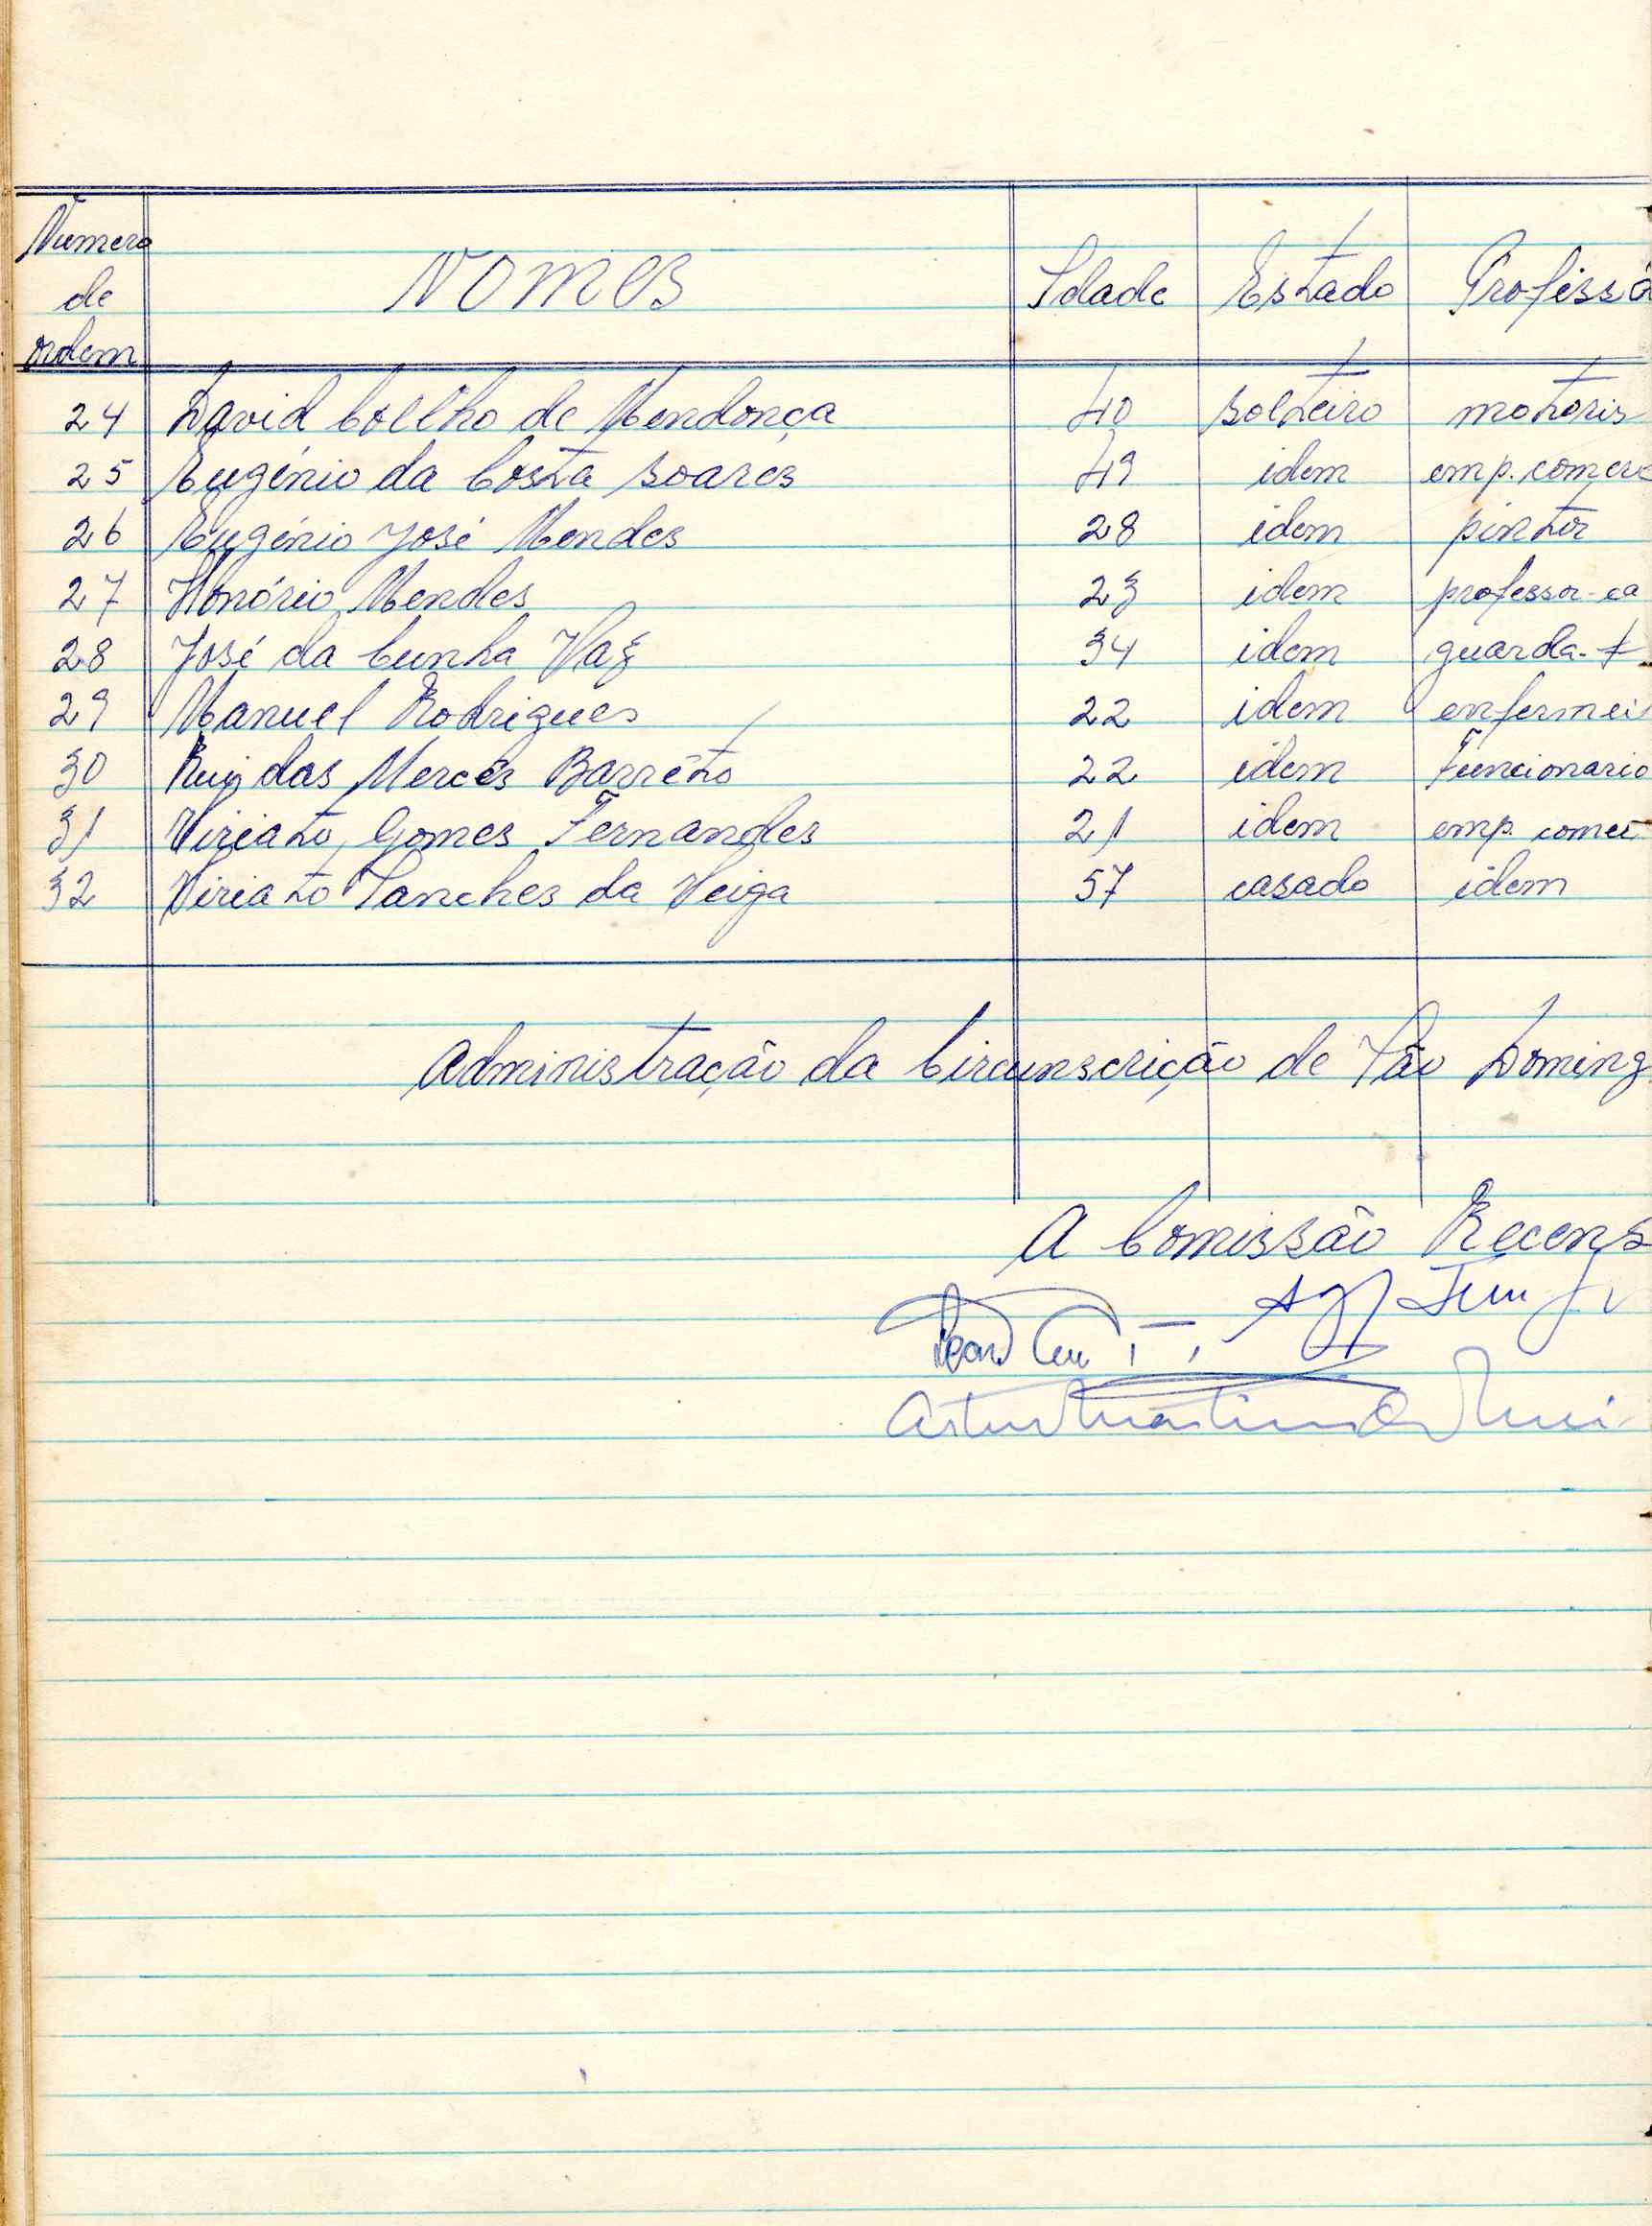 Numero de ordem Nomes Idade Estado Profissã
24 David Coelho de Mendonça 40 solteiro motoris
25 Eugénio da Costa Soares 49 idem emp. comerc
26 Eugénio José Mendes 28 idem pintor
27 Honório Mendes 23 idem professor-ca
28 José da Cunha Vaz 34 idem guarda-f
29 Manuel Rodrigues 22 idem enfermei
30 Ruy das Mercês Barrêto 22 idem Funcionario
31 Viriato Gomes Fernandes 21 idem emp. comer
32 Viriato Sanches da Veiga 57 casado idem
Administração da Circunscrição de São Doming
A Comissão Recens
Artur Martins